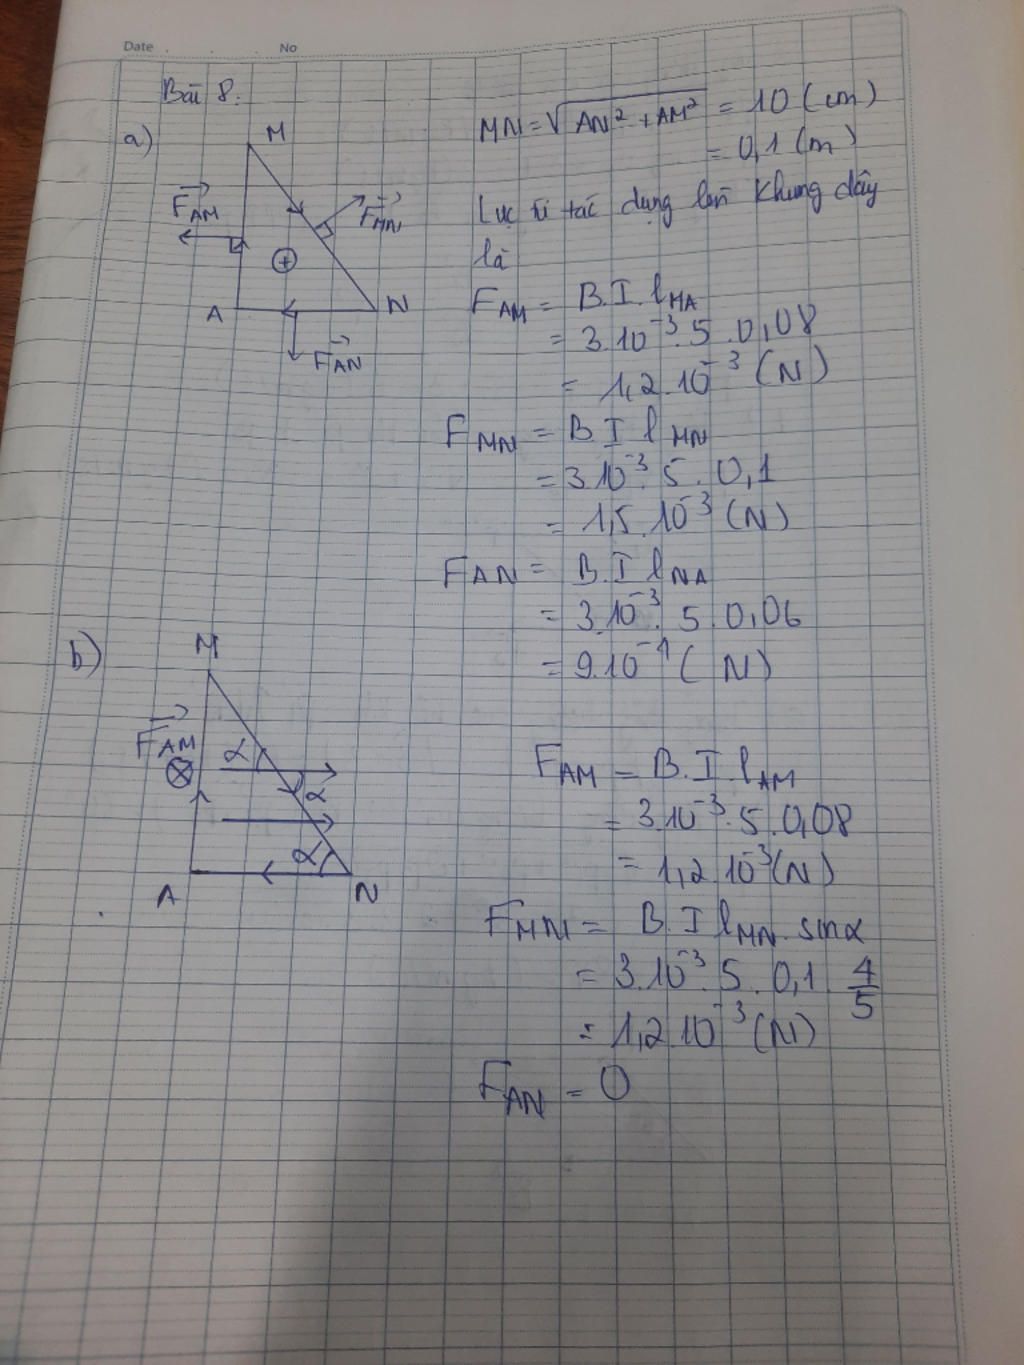 Date . . No
Bài 8:
a)
M
F⃗AM
F⃗MN
A
N
F⃗AN
MN = √(AN² + AM²) = 10 (cm)
= 0,1 (m)
Lực từ tác dụng lên khung dây
là
FAM = B.I.lMA
= 3.10⁻³.5.0,08
= 1,2.10⁻³ (N)
FMN = B.I lMN
= 3.10⁻³.5.0,1
= 1,5.10⁻³ (N)
FAN = B.I lNA
= 3.10⁻³.5.0,06
= 9.10⁻⁴ (N)
b)
M
F⃗AM
α
α
α
A
N
FAM = B.I.lAM
= 3.10⁻³.5.0,08
= 1,2.10⁻³ (N)
FMN = B.I lMN.sinα
= 3.10⁻³.5.0,1.4/5
= 1,2.10⁻³ (N)
FAN = 0